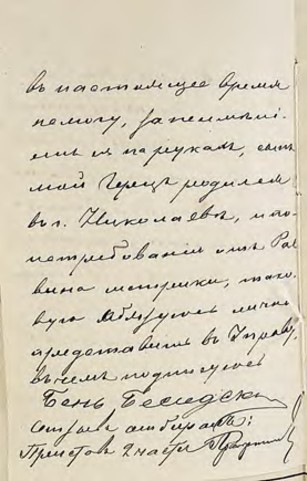 въ настоящее время
немогу, за неимѣні-
емъ ея на рукахъ, сынъ
мой Герецъ родился
въ г. Николаевѣ, и по
истребованіи отъ Рав
вина метрики, тако-
вую обязуюсь лично
представить въ Управу
въ чемъ подписуюсь
Бень Беседск
отобралъ:
Приставъ 2 части